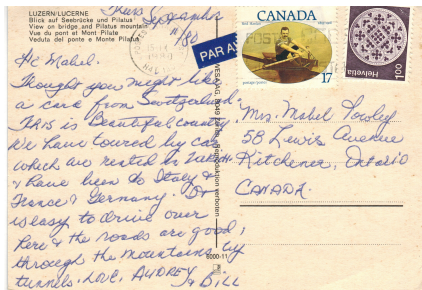 LUZERN/LUCERNE
Blick auf Seebrücke und Pilatus
View on bridge and Pilatus mountain
Vue du pont et Mont Pilate
Veduta del ponte e Monte Pilatus
Thurs September
11/80
Hi Mabel.
Thought you might like
a card from Switzerland.
This is Beautiful country,
We have toured by car
which we rented in Zurich.
& have been to Italy &
France & Germany. It
is easy to drive over
here & the roads are good,
through the mountains by
tunnels. LOVE, AUDREY & BILL
PAR AV
CANADA
17
Helvetia
1.00
Reproduktion verboten
6000-11
Mrs. Mabel
58 Lewis Avenue
Kitchener, Ontario
CANADA.